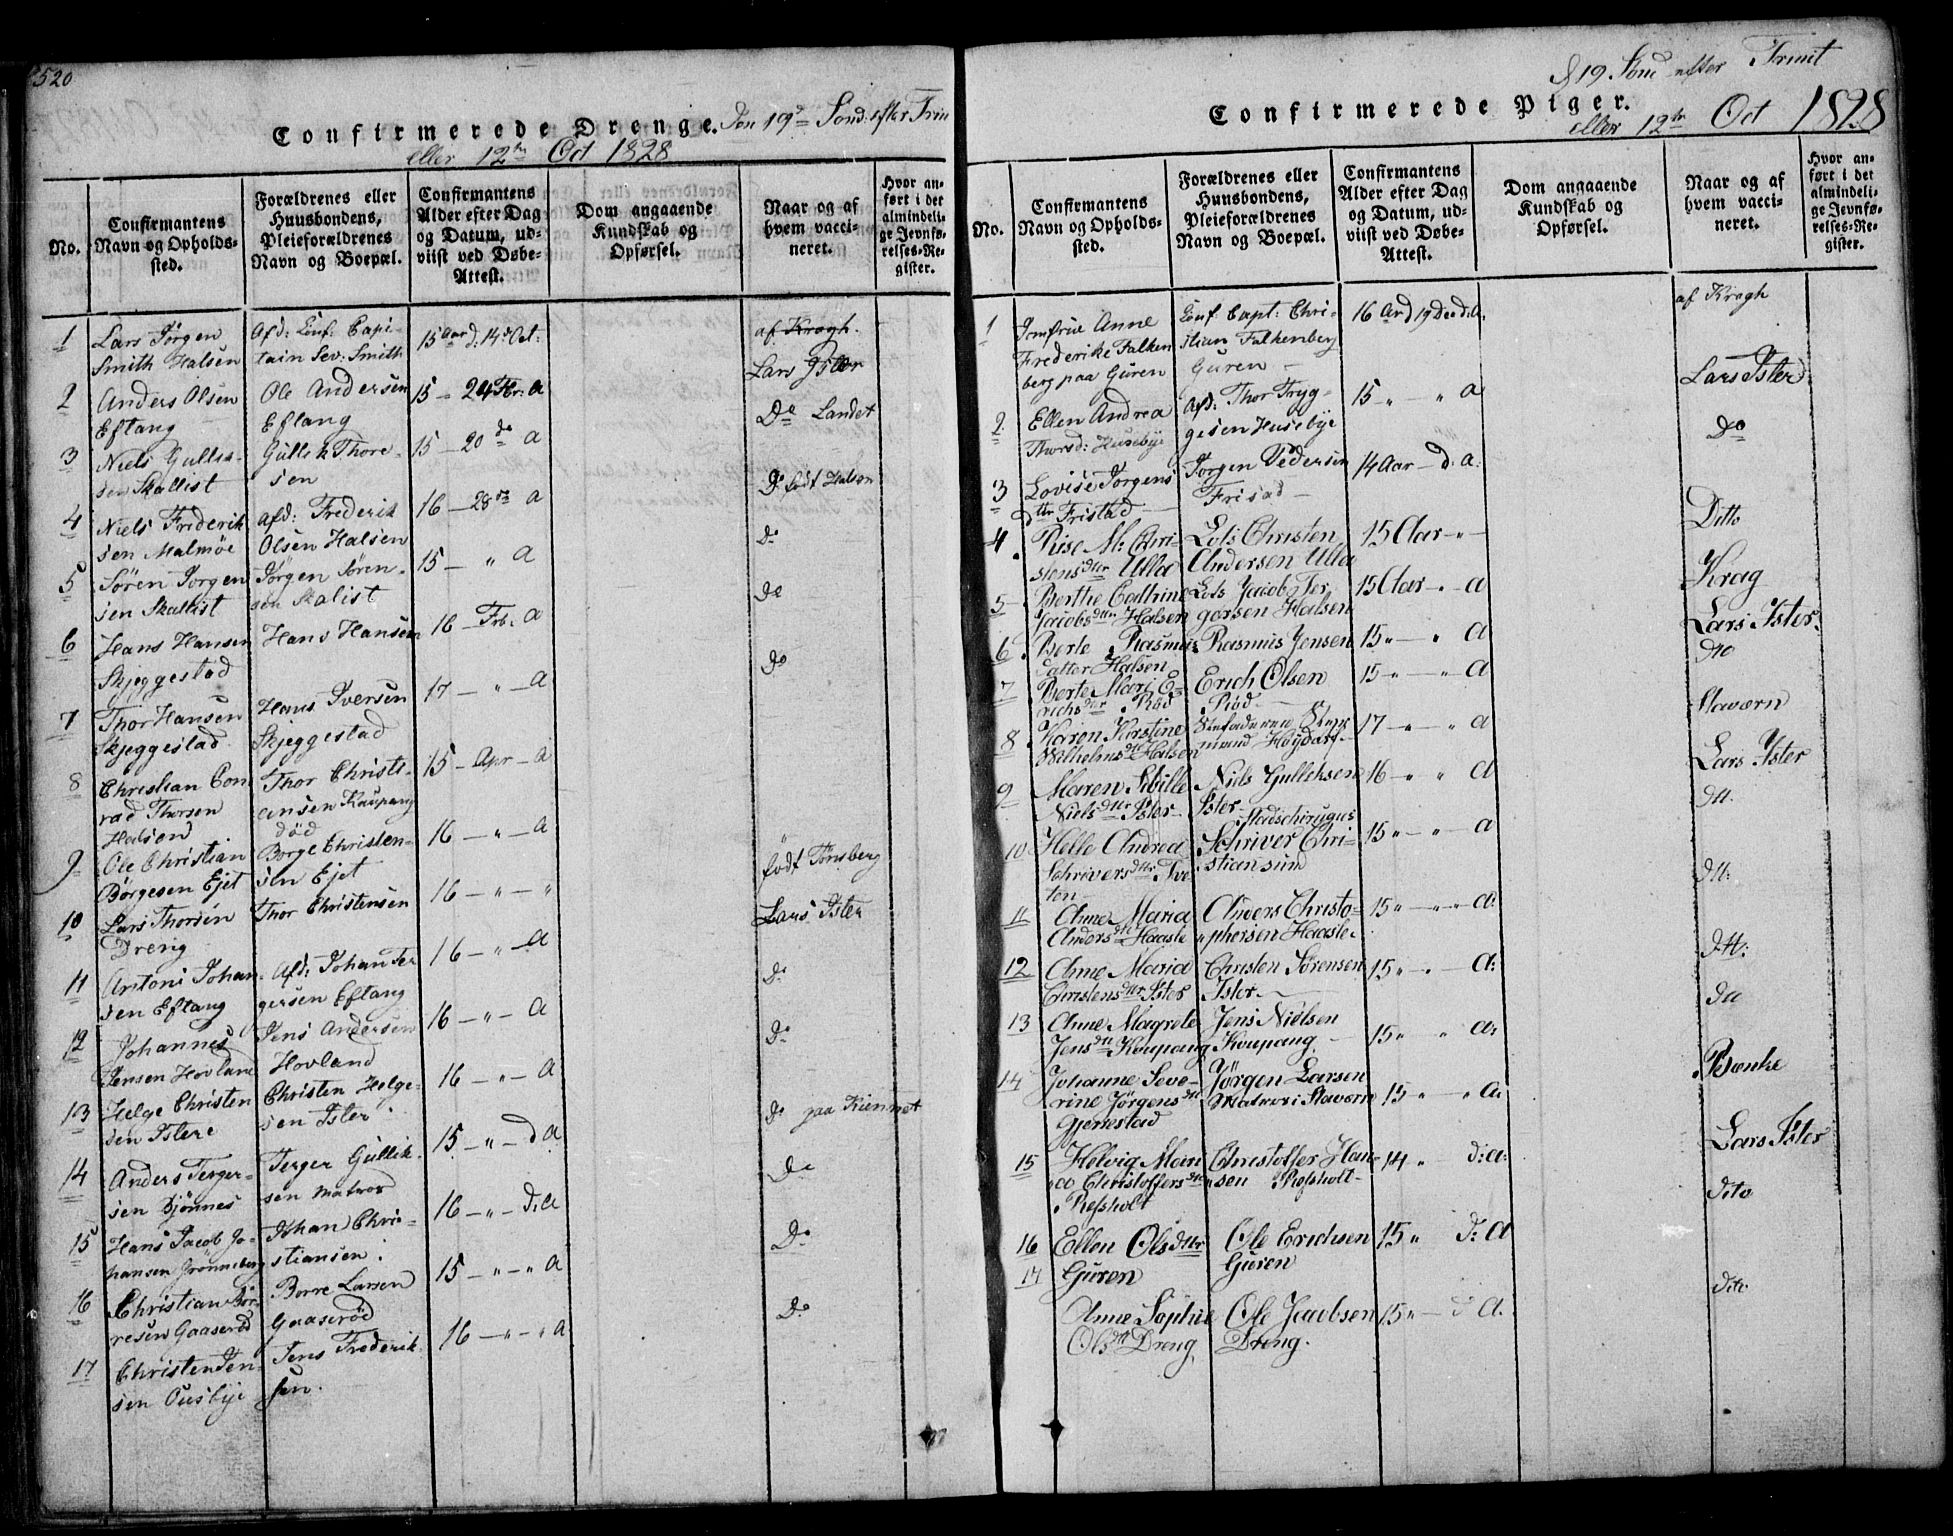 520
Confirmerede Drenge. Den 19de Sond: efter Trin
eller 12te Oct 1828
No.
Confirmantens
Navn og Opholds-
sted.
Forældrenes eller
Huusbondens,
Pleieforældrenes
Navn og Boepæl.
Confirmantens
Alder efter Dag
og Datum, ud-
viist ved Døbe-
Attest.
Dom angaaende
Kundskab og
Opførsel.
Naar og af
hvem vacci-
neret.
Hvor an-
ført i det
almindeli-
ge Jevnfø-
relses-Re-
gister.
1 Lars Jørgen
Smith Halsen
Afd: Capi-
tain Sev: Smith
15 Aar d: 14 Oct:
af Kragh.
2 Anders Olsen
Eftang
Ole Andersen
Eftang
15 - 24 Fbr: a
Lars Ister
3 Niels Gullik-
sen Skallist
Gullik Thore-
sen
15 - 20 do a
Do Landet
4 Niels Frederik
sen Malmøe
afd: Frederik
Olsen Halsen
16 - 28 do a
Do født Halsen
5 Søren Jorgen
sen Skallist
Jørgen Sören-
sen Skalist
15 - " a
Do
6 Hans Hansen
Skjeggestad
Hans Hansen
16 - Frb: a
Do
7 Thor Hansen
Skjeggestad
Hans Iversen
Skjeggestad
17 - " - a
Do
8 Christian Con
rad Thorsen
Halsen
Thor Christi-
ansen Kaupang
död
15 - Apr - a
9 Ole Christian
Börgesen Ejet
Borge Christen-
sen Ejet
16 - " - a
født Tønsberg
10 Lars Thorsen
Dreng
Thor Christensen
16 - " - "
Lars Ister
11 Antoni Johan-
sen Eftang
Afd: Johan Ter
gersen Eftang
16 - " - a
Do
12 Johannes
Jensen Hovland
Jens Andersen
Hovland
16 - " - a
Do
13 Helge Christen
sen Istere
Christen Helge-
sen Ister
16 - " - a
Do paa Kiennet
14 Anders Terger-
sen Bjönnes
Terger Gullik-
sen Matros
15 - " - d a
Do
15 Hans Jacob Jo-
hansen Grönneberg
Johan Chri-
stiansen
16 - " - d: a
Do
16 Christian Bör-
resen Gaaseröd
Borre Larsen
Gaaseröd
15 - " - " a
Do
17 Christen Jen-
sen Ousbye
Jens Frederik
sen.
16 - " - " a
d 19 Sönd efter Trinit
Confirmerede Piger.
eller 12te Oct 1828
No.
Confirmantens
Navn og Opholds-
sted.
Forældrenes eller
Huusbondens,
Pleieforældrenes
Navn og Boepæl.
Confirmantens
Alder efter Dag
og Datum, ud-
viist ved Døbe-
Attest.
Dom angaaende
Kundskab og
Opførsel.
Naar og af
hvem vacci-
neret.
Hvor an-
ført i det
almindeli-
ge Jevnfø-
relses-Re-
gister.
1 Jomfrue Anne
Frederike Falken
berg paa Guren
Capt: Chri-
stian Falkenberg
Guren
16 Ar d 19 Dec d: a.
af Kragh
2 Ellen Andrea
Thorsd: Husebye
Afd: Thor Tryg-
gesen Husebye
15 " " a
Lars Ister
3 Lovise Jorgens
dtr Fristad
Jorgen Pedersen
Frisad
14 Aar - d: a:
Do
4 Rise M: Chri-
stensdtr Ulla
Lots Christen
Andersen Ulla
15 Aar - " -
Ditto
5 Berthe Cathrine
Jacobsdtr Halsen
Lots Jacob Ter
gersen Halsen
15 Aar - " a
Krag
6 Berte Rasmus
datter Halsen
Rasmus Jensen
15 " - " a
Lars Ister
7 Berte Mari E-
richsdtr Röd
Erich Olsen
Röd
15 " - " a
dto
8 Karen Kirstine
Wilhelmsdtr Halsen
17 - " - " a
Stavern
9 Maren Sibille
Nielsdtr Ister
Niels Gulleksen
Ister
16 - " " a
Lars Ister
10 Helle Andrea
Schriversdtr Tve
ten
Stadschirugus
Schriver Chri-
stiansund
15 " - " a
dtt.
11 Anne Maria
Andersdtr Haasle
Anders Christo-
phersen Haasle
15 " - " " a:
dtt:
12 Anne Maria
Christensdtr Ister
Christen Sörensen
Ister
15 " - " - a:
dtt:
13 Anne Magrete
Jensdtr Koupang
Jens Nielsen
Koupang
15 " " a:
dtt
14 Johanne Seve-
rine Jörgensdtr
Gjerrestad
Jörgen Larsen
Matros i Stavern
15 " " a:
Bænke
15 Helvig Mari
Christoffersdtr
Resholt
Christoffer Han
sen Resholt
14 " d: a:
Lars Ister
16 Ellen Olsdttr
Guren
Ole Erichsen
Guren
15 " d: a
dito
17 Anne Sophie
Olsdtt Dreng
Ole Jacobsen
Dreng.
15 " - d a.
dtt: